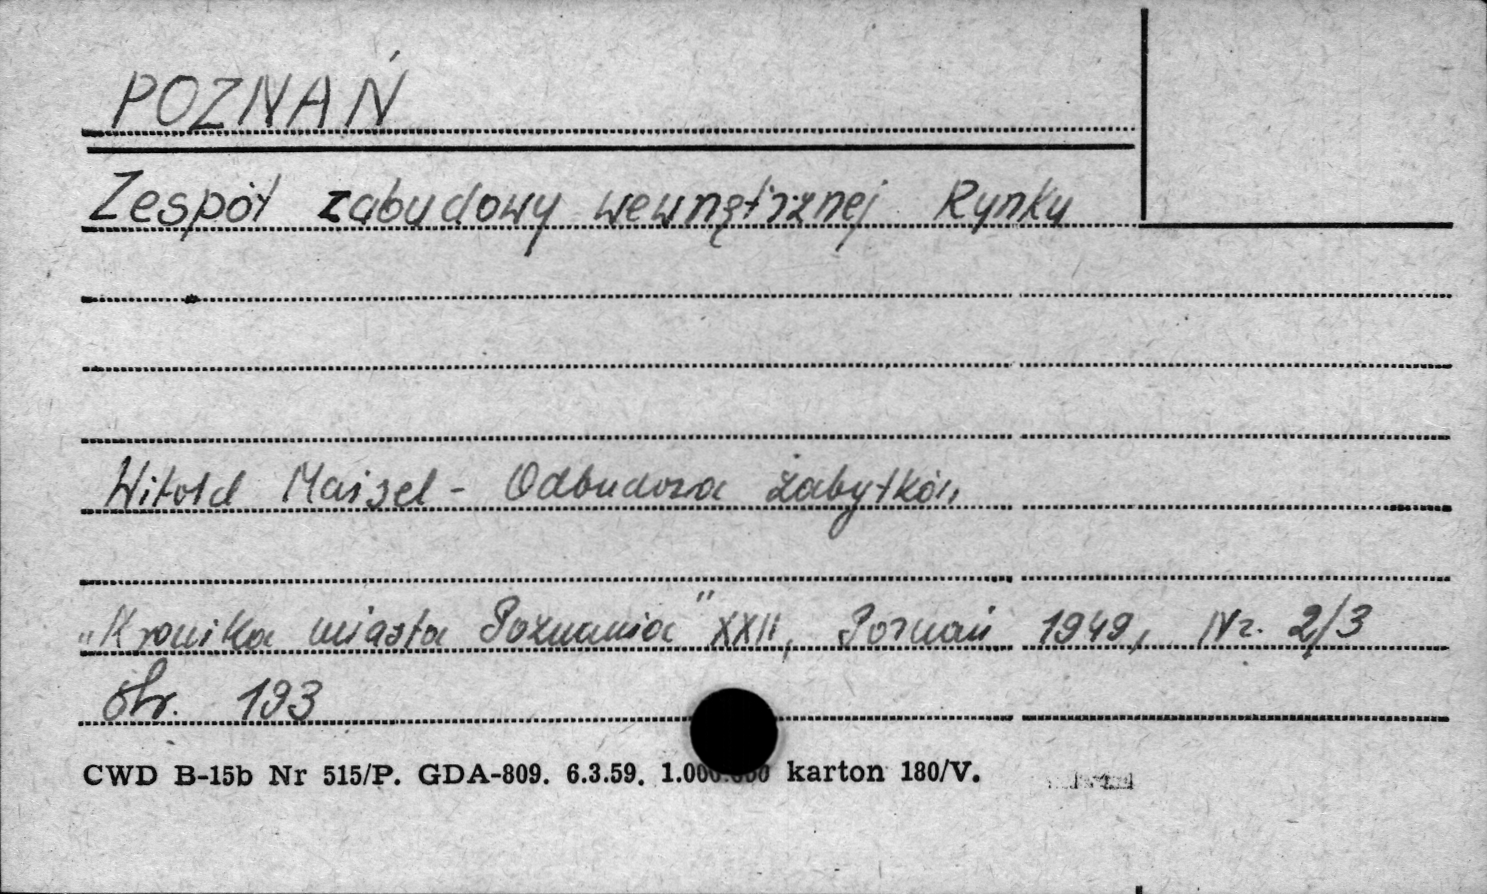 POZNAŃ
Zespół zabudowy wewnętrznej Rynku
Witold Maisel - Odbudowa zabytków
"Kronika miasta Poznania" XXII, Poznań 1949, Nr. 2/3
str. 193
CWD B-15b Nr 515/P. GDA-809. 6.3.59. 1.000.000 karton 180/V.